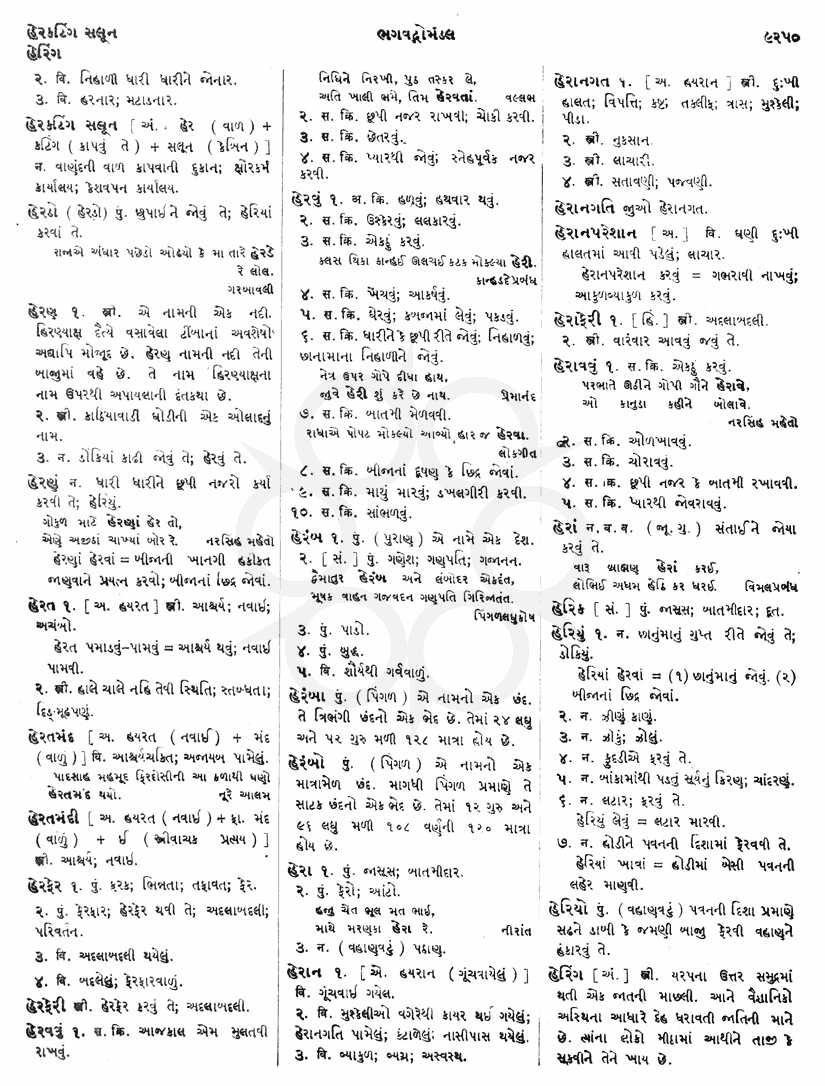 હેરકટિંગ સલૂન
હેરિંગ
ભગવદ્ગોમંડલ
૯૨૫૦
૨. વિ. નિહાળી ધારી ધારીને જોનાર.
૩. વિ. હરનાર; મટાડનાર.
હેરકટિંગ સલૂન [ અં. હેર ( વાળ ) +
કટિંગ ( કાપવું તે ) + સલૂન ( કેબિન ) ]
ન. વાણંદની વાળ કાપવાની દુકાન; ક્ષૌરકર્મ
કાર્યાલય; કેશવપન કાર્યાલય.
હેરડો ( હેરડ઼ો ) પું. છુપાઈને જોવું તે; હેરિયાં
કરવાં તે.
રાજાએ અંધાર પછેડો ઓઢ્યો કે મા તારે હેરડે
રે લોલ.
ગરબાવલી
હેરણ ૧. સ્ત્રી. એ નામની એક નદી.
હિરણ્યાક્ષ દૈત્યે વસાવેલા ટીંબાનાં અવશેષો
અદ્યાપિ મોજૂદ છે. હેરણ નામની નદી તેની
બાજુમાં વહે છે. તે નામ હિરણ્યાક્ષના
નામ ઉપરથી અપાયલાની દંતકથા છે.
૨. સ્ત્રી. કાઠિયાવાડી ઘોડીની એક ઓલાદનું
નામ.
૩. ન. ડોકિયાં કાઢી જોવું તે; હેરવું તે.
હેરણું ન. ધારી ધારીને છૂપી નજરો કર્યાં
કરવી તે; હેરિયું.
ગોકુળ માટે હેરણાં હેર તો,
એણે અજીઠાં ચાખ્યાં બોર રે. નરસિંહ મહેતો
હેરણાં હેરવાં = બીજાની ખાનગી હકીકત
જાણવાને પ્રયત્ન કરવો; બીજાનાં છિદ્ર જોવાં.
હેરત ૧. [ અ. હયરત ] સ્ત્રી. આશ્ચર્ય; નવાઈ;
અચંબો.
હેરત પમાડવું-પામવું = આશ્ચર્ય થવું; નવાઈ
પામવી.
૨. સ્ત્રી. હાલે ચાલે નહિ તેવી સ્થિતિ; સ્તબ્ધતા;
દિઙ્મૂઢપણું.
હેરતમંદ [ અ. હયરત ( નવાઈ ) + મંદ
( વાળું ) ] વિ. આશ્ચર્યચકિત; અજાયબ પામેલું.
પાદસાહ મહમૂદ ફિરદોસીની આ કળાથી ઘણો
હેરતમંદ થયો. નૂરે આલમ
હેરતમંદી [ અ. હયરત ( નવાઈ ) + ફા. મંદ
( વાળું ) + ઈ ( સ્ત્રીવાચક પ્રત્યય ) ]
સ્ત્રી. આશ્ચર્ય; નવાઈ.
હેરફેર ૧. પું. ફરક; ભિન્નતા; તફાવત; ફેર.
૨. પું. ફેરફાર; હેરફેર થવી તે; અદલાબદલી;
પરિવર્તન.
૩. વિ. અદલાબદલી થયેલું.
૪. વિ. બદલેલું; ફેરફારવાળું.
હેરફેરી સ્ત્રી. હેરફેર કરવું તે; અદલાબદલી.
હેરવવું ૧. સ. ક્રિ. આજકાલ એમ મુલતવી
રાખવું.
નિધિને નિરખી, પુઠ તસ્કર લે,
અતિ ખાલી ભમે, તિમ હેરવતાં. વલ્લભ
૨. સ. ક્રિ. છૂપી નજર રાખવી; ચોકી કરવી.
૩. સ. ક્રિ. છેતરવું.
૪. સ. ક્રિ. પ્યારથી જોવું; સ્નેહપૂર્વક નજર
કરવી.
હેરવું ૧. અ. ક્રિ. હળવું; હથવાર થવું.
૨. સ. ક્રિ. ઉશ્કેરવું; લલકારવું.
૩. સ. ક્રિ. એકઠું કરવું.
કલસ થિકા કાન્હઈ ઊલચઈ કટક મોકલ્યા હેરી.
કાન્હડદેપ્રબંધ
૪. સ. ક્રિ. ખેંચવું; આકર્ષવું.
૫. સ. ક્રિ. ઘેરવું; કબજામાં લેવું; પકડવું.
૬. સ. ક્રિ. ધારીને કે છૂપી રીતે જોવું; નિહાળવું;
છાનામાના નિહાળીને જોવું.
નેત્ર ઉપર ગોપે દીધા હાથ,
જીવે હેરી શું કરે છે નાથ. પ્રેમાનંદ
૭. સ. ક્રિ. બાતમી મેળવવી.
રાધાએ પોપટ મોકલ્યો આવ્યો હાર જ હેરવા.
લોકગીત
૮. સ. ક્રિ. બીજાનાં દૂષણ કે છિદ્ર જોવાં.
૯. સ. ક્રિ. માથું મારવું; ડખલગીરી કરવી.
૧૦. સ. ક્રિ. સાંભળવું.
હેરંબ ૧. પું. ( પુરાણ ) એ નામે એક દેશ.
૨. [ સં. ] પું. ગણેશ; ગણપતિ; ગજાનન.
દ્વૈમાતુર હેરંબ અને લંબોદર એકદંત,
મૂષક વાહન ગજવદન ગણપતિ ગિરિજાતંત.
પિંગળલઘુકોષ
૩. પું. પાડો.
૪. પું. બુદ્ધ.
૫. વિ. શૌર્યથી ગર્વવાળું.
હેરંબા પું. ( પિંગળ ) એ નામનો એક છંદ.
તે ત્રિભંગી છંદનો એક ભેદ છે. તેમાં ૨૪ લઘુ
અને ૫૨ ગુરુ મળી ૧૨૮ માત્રા હોય છે.
હેરંબો પું. ( પિંગળ ) એ નામનો એક
માત્રામેળ છંદ. માગધી પિંગળ પ્રમાણે તે
સાટક છંદનો એક ભેદ છે. તેમાં ૧૨ ગુરુ અને
૯૬ લઘુ મળી ૧૦૮ વર્ણની ૧૨૦ માત્રા
હોય છે.
હેરા ૧. પું. જાસૂસ; બાતમીદાર.
૨. પું. ફેરો; આંટો.
હજી ચેત ભૂલ મત ભાઈ,
માથે મરણકા હેરા રે. નીરાંત
૩. ન. ( વહાણવટું ) પઠાણ.
હેરાન ૧. [ એ. હયરાન ( ગૂંચવાયેલું ) ]
વિ. ગૂંચવાઈ ગયેલ.
૨. વિ. મુશ્કેલીઓ વગેરેથી કાયર થઈ ગયેલું;
હેરાનગતિ પામેલું; કંટાળેલું; નાસીપાસ થયેલું.
૩. વિ. વ્યાકુળ; વ્યગ્ર; અસ્વસ્થ.
હેરાનગત ૧. [ અ. હયરાન ] સ્ત્રી. દુઃખી
હાલત; વિપત્તિ; કષ્ટ; તકલીફ; ત્રાસ; મુશ્કેલી;
પીડા.
૨. સ્ત્રી. નુકસાન.
૩. સ્ત્રી. લાચારી.
૪. સ્ત્રી. સતાવણી; પજવણી.
હેરાનગતિ જુઓ હેરાનગત.
હેરાનપરેશાન [ અ. ] વિ. ઘણી દુઃખી
હાલતમાં આવી પડેલું; લાચાર.
હેરાનપરેશાન કરવું = ગભરાવી નાખવું;
આકુળવ્યાકુળ કરવું.
હેરાફેરી ૧. [ હિં. ] સ્ત્રી. અદલાબદલી.
૨. સ્ત્રી. વારંવાર આવવું જવું તે.
હેરાવવું ૧. સ. ક્રિ. એકઠું કરવું.
પરભાતે ઊઠીને ગોપી ગૌને હેરાવે,
ઓ કાનુડા કહીને બોલાવે.
નરસિંહ મહેતો
૨. સ. ક્રિ. ઓળખાવવું.
૩. સ. ક્રિ. ચોરાવવું.
૪. સ. ક્રિ. છૂપી નજર કે બાતમી રખાવવી.
૫. સ. ક્રિ. પ્યારથી જોવરાવવું.
હેરાં ન. બ. વ. ( જૂ. ગુ. ) સંતાઈને જોયા
કરવું તે.
વારૂ બ્રાહ્મણ હેરાં કરઈ,
લોભિઈ અધમ હેઠિ કર ધરઈ. વિમલપ્રબંધ
હેરિક [ સં. ] પું. જાસૂસ; બાતમીદાર; દૂત.
હેરિયું ૧. ન. છાનુંમાનું ગુપ્ત રીતે જોવું તે;
ડોકિયું.
હેરિયાં હેરવાં = (૧) છાનુંમાનું જોવું. (૨)
બીજાનાં છિદ્ર જોવાં.
૨. ન. ઝીણું કાણું.
૩. ન. ઝોકું; ઝોલું.
૪. ન. ફુદડીએ ફરવું તે.
૫. ન. બાંકામાંથી પડતું સૂર્યનું કિરણ; ચાંદરણું.
૬. ન. લટાર; ફરવું તે.
હેરિયું લેવું = લટાર મારવી.
૭. ન. હોડીને પવનની દિશામાં ફેરવવી તે.
હેરિયાં ખાવાં = હોડીમાં બેસી પવનની
લહેર માણવી.
હેરિયો પું. ( વહાણવટું ) પવનની દિશા પ્રમાણે
સઢને ડાબી કે જમણી બાજુ ફેરવી વહાણને
હંકારવું તે.
હેરિંગ [ અં. ] સ્ત્રી. યરપના ઉત્તર સમુદ્રમાં
થતી એક જાતની માછલી. આને વૈજ્ઞાનિકો
અસ્થિના આધારે દેહ ધરાવતી જાતિની માને
છે. ત્યાંના લોકો મીઠામાં આથીને તાજી કે
સૂકવીને તેને ખાય છે.